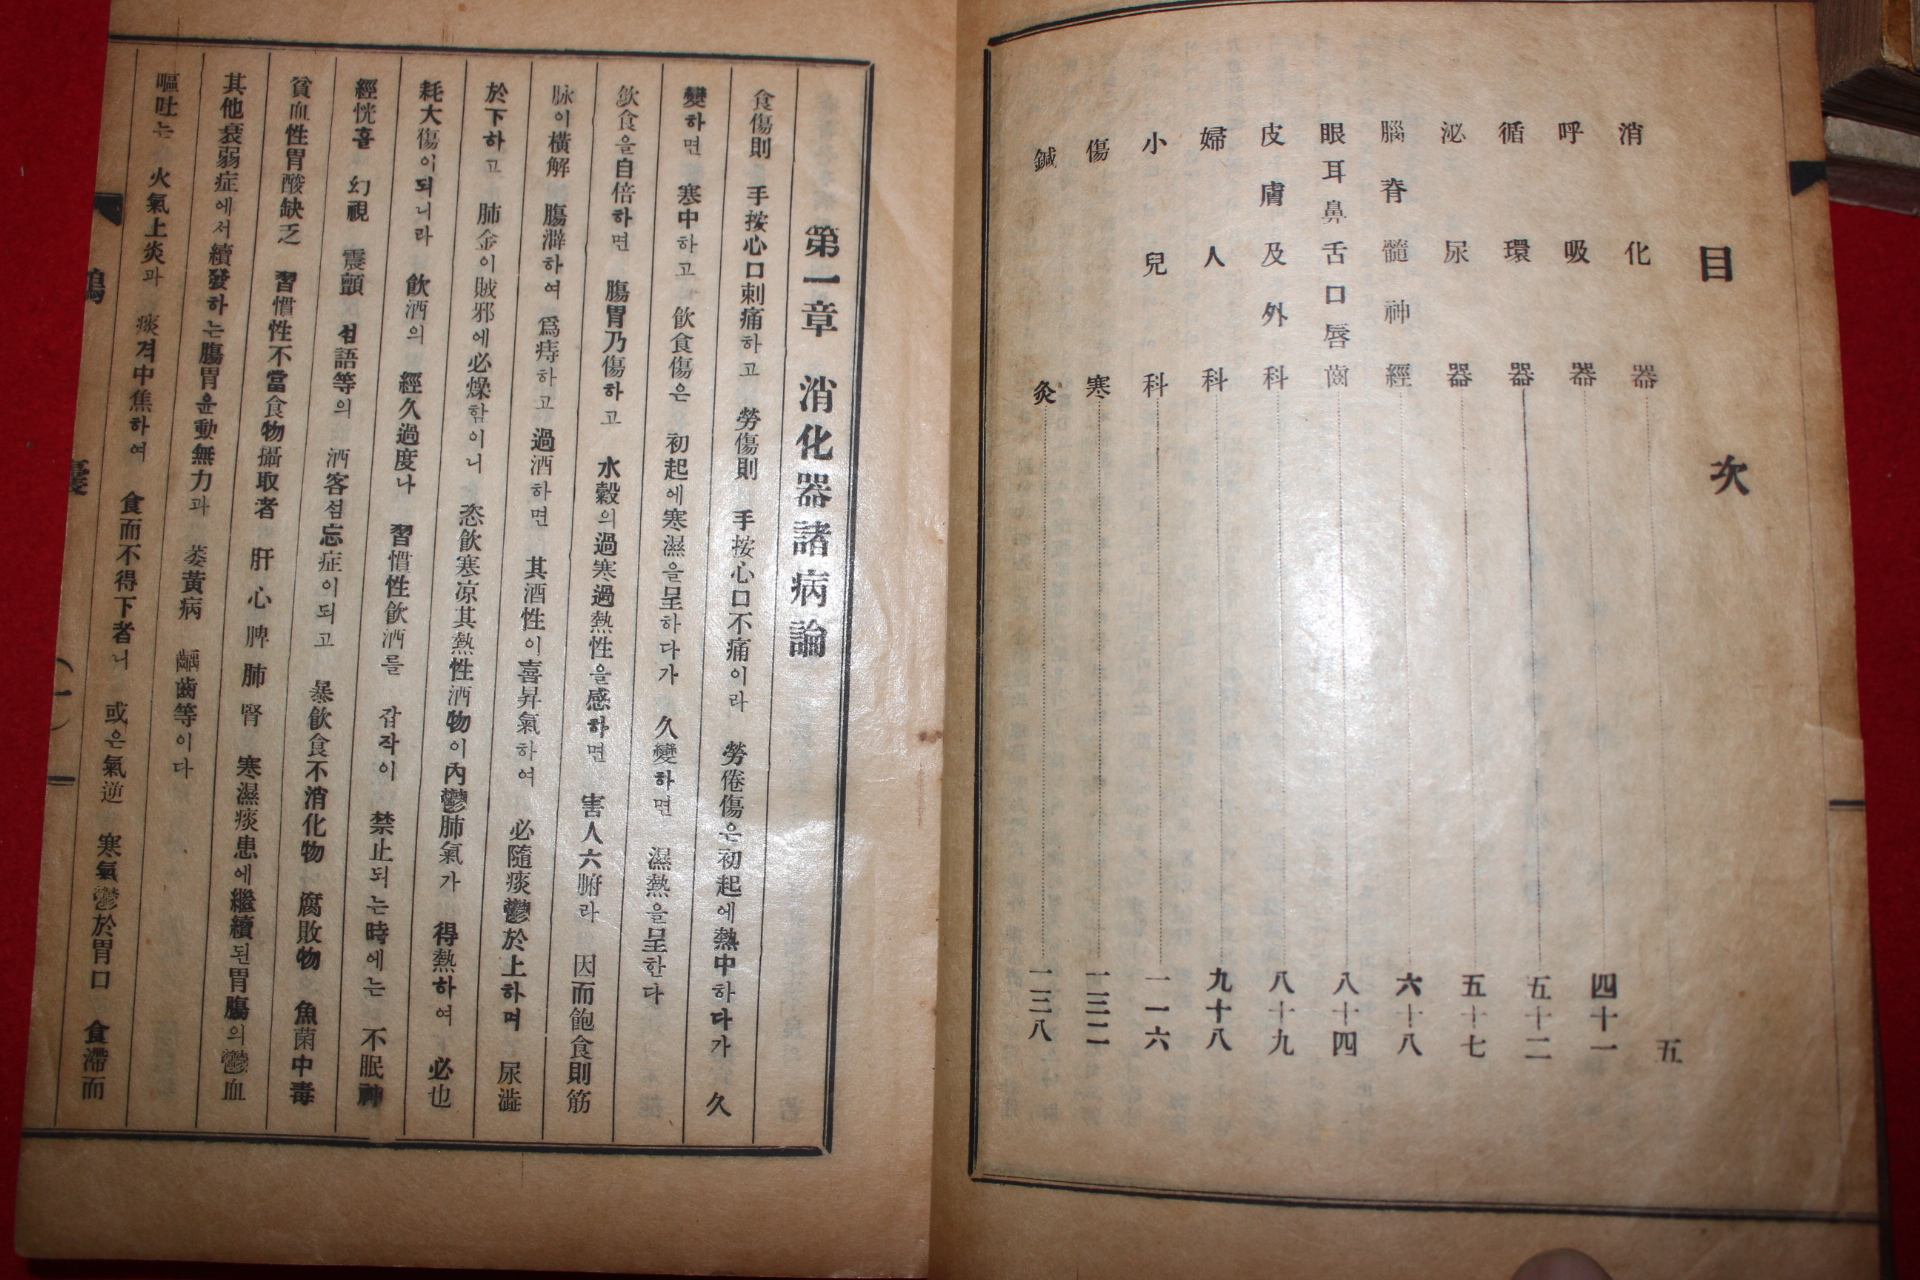 目次
消化器 五
呼吸器 四十一
循環器 五十二
泌尿器 五十七
腦脊髓神經 六十八
眼耳鼻舌口唇齒 八十四
皮膚及外科 八十九
婦人科 九十八
小兒科 一一六
傷寒 一三二
鍼灸 一三八
第一章 消化器諸病論
食傷則 手按心口刺痛하고 勞傷則 手按心口不痛이라 勞倦傷은初起에熱中하다가 久
變하면 寒中하고 飮食傷은 初起에寒濕을呈하다가 久變하면 濕熱을呈한다
飮食을自倍하면 腸胃乃傷하고 水穀의過寒過熱性을感하면 害人六腑라 因而飽食則筋
脉이橫解 腸澼하여 爲痔하고過酒하면 其酒性이喜昇氣하여 必隨痰鬱於上하며 尿澁
於下하고 肺金이賊邪에必燥함이니 恣飮寒凉其熱性酒物이內鬱肺氣가 得熱하여 必也
耗大傷이되니라 飮酒의 經久過度나 習慣性飮酒를 갑작이 禁止되는時에는 不眠神
經恍홀 幻視 震顫 섬語等의 酒客섬忘症이되고 暴飮食不消化物 腐敗物 魚菌中毒
貧血性胃酸缺乏 習慣性不當食物攝取者 肝心脾肺腎 寒濕痰患에繼續된胃膓의鬱血
其他衰弱症에서續發하는膓胃운動無力과 萎黃病 齲齒等이다
嘔吐는 火氣上炎과 痰격中焦하여 食而不得下者니 或은氣逆 寒氣鬱於胃口 食滯而
(一)